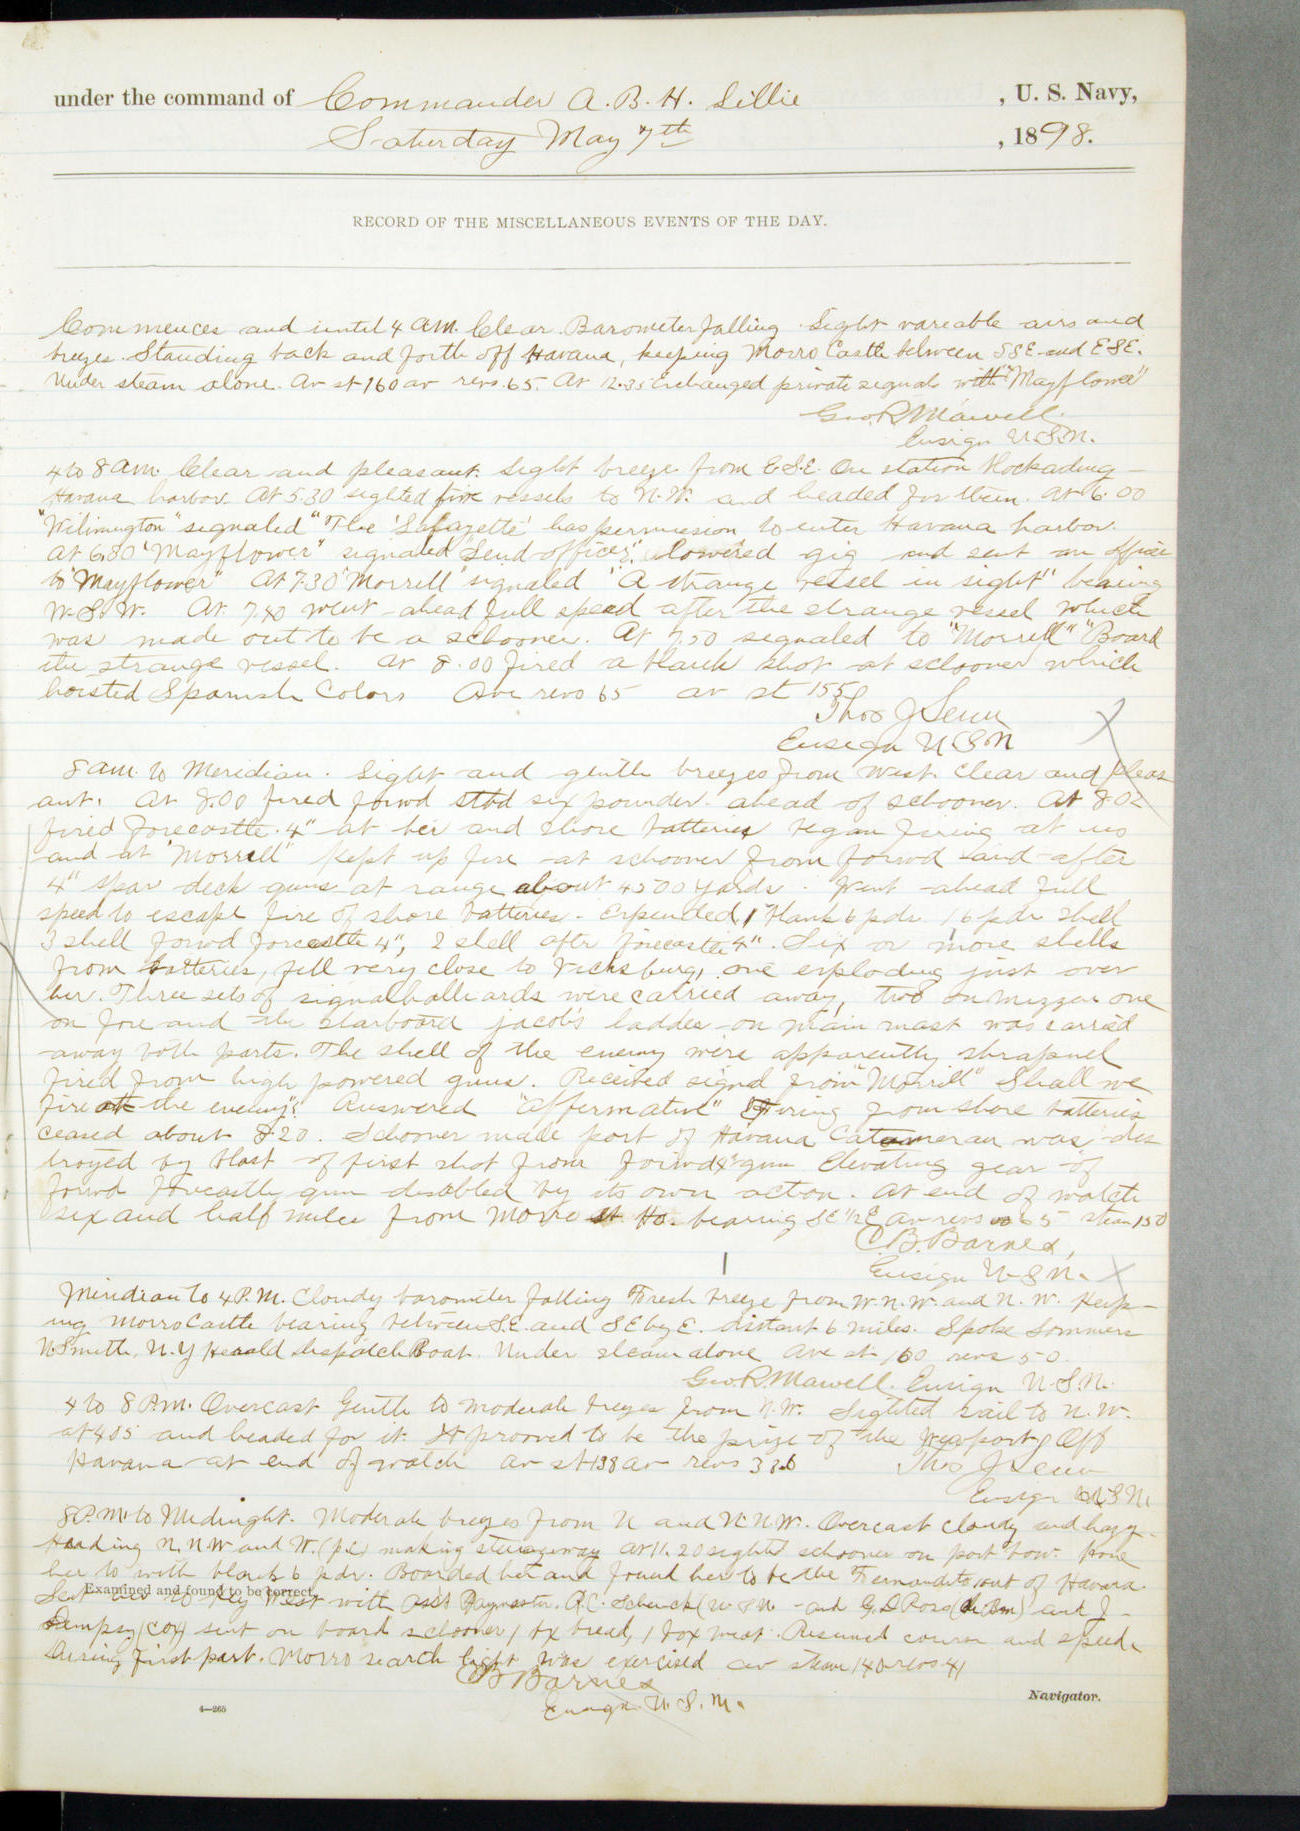 under the command of Commander A. B. H. Lillie , U. S. Navy,
Saturday May 7th , 1898.
RECORD OF THE MISCELLANEOUS EVENTS OF THE DAY.
Commences and until 4 A.M. Clear. Barometer falling. Light vareable airs and
breezes. Standing back and forth off Havana, keeping Morro Castle between SSE and ESE.
Under steam alone. Av st 160 av revs. 65. At 12.35 Exchanged private signals with "Mayflower"
Geo. R. Marvell.
Ensign U.S.N.
4 to 8 A.M. Clear and pleasant. Light breeze from E.S.E. On station blockading
Havana harbor. At 5.30 sighted five vessels to N.W. and headed for them. At 6.00
"Wilimington" signaled "The 'Lafayette' has permission to enter Havana harbor
At 6.30 "Mayflower" signaled "Send officer". Lowered gig and sent an officer
to "Mayflower" At 7.30 "Morrill" signaled "A strange vessel in sight" bearing
W.S.W. At 7.40 went ahead full speed after the strange vessel which
was made out to be a schooner. At 7.50 signaled to "Morrill" "Board
the strange vessel. At 8.00 fired a blank shot at schooner which
hoisted Spanish Colors Ave revs 65 av st 155
Thos J Senn
Ensign U.S.N
8 am. to Meridian. Light and gentle breezes from West. Clear and pleas
ant. At 8.00 fired forwd stbd six pounder ahead of schooner. At 8.02
fired forecastle 4" at her and shore batteries began firing at us
and at "Morrill" Kept up fire at schooner from forwd and after
4" spar deck guns at range about 4500 yards. Went ahead full
speed to escape fire of shore batteries. Expended 1 blank 6 pdr 1 6 pdr shell
3 shell forwd forecastle 4", 2 shell after forecastle 4". Six or more shells
from batteries, fell very close to Vicksburg, one exploding just over
her. Three sets of signal halliards were carried away, two on mizzen one
on fore and the starboard jacob's ladder on main mast was carried
away both parts. The shell of the enemy were apparently shrapnel
fired from high powered guns. Received signal from "Morrill" Shall we
fire at the enemy"? Answered "affermative" Firing from shore batteries
ceased about 8.20. Schooner made port of Havana Catameran was des
troyed by blast of first shot from forwd 4" gun Elevating gear of
forwd forecastle gun disabled by its own action. At end of watch
six and half miles from Morro Lt Ho. bearing SE 1/2 E av revs 65 steam 150
C. B. Barnes,
Ensign U.S.N.
Meridian to 4 P.M. Cloudy barometer falling Fresh breeze from W.N.W. and N.W. Keep-
ing Morro Castle bearing between S.E. and SE by E. distant 6 miles. Spoke Sommers
N Smith, N.Y Herald Despatch Boat. Under steam alone Ave st 160 revs 50.
Geo. R. Marvell. Ensign U.S.N.
4 to 8 P.M. Overcast Gentle to moderate breezes from N.W. Sighted sail to N.W.
at 4.05 and headed for it. It prooved to be the prize of the Newport, Off
Havana at end of watch av st 138 av revs 38.6
Thos J Senn
Ensign U.S.N.
8 P.M. to Midnight. Moderate breezes from N and N N W. Overcast cloudy and hazy.
Heading N.N.W and W. (p.c.) making steerageway At 11.20 sighted schooner on port bow. Hove
her to with blank 6 pdr. Boarded her and found her to be the Fernandito, out of Havana.
Examined and found to be correct.
Sent her to Key West with Asst Paymaster. R.C. Schenck (U S N and G. D Rose and J
Dempsy (Cox) sent on board schooner 1 bx bread, 1 box meat. Resumed course and speed.
During first part. Morro search light was exercised av steam 140 revs 41
C B Barnes
Ensign. U.S.N.
4—265
Navigator.